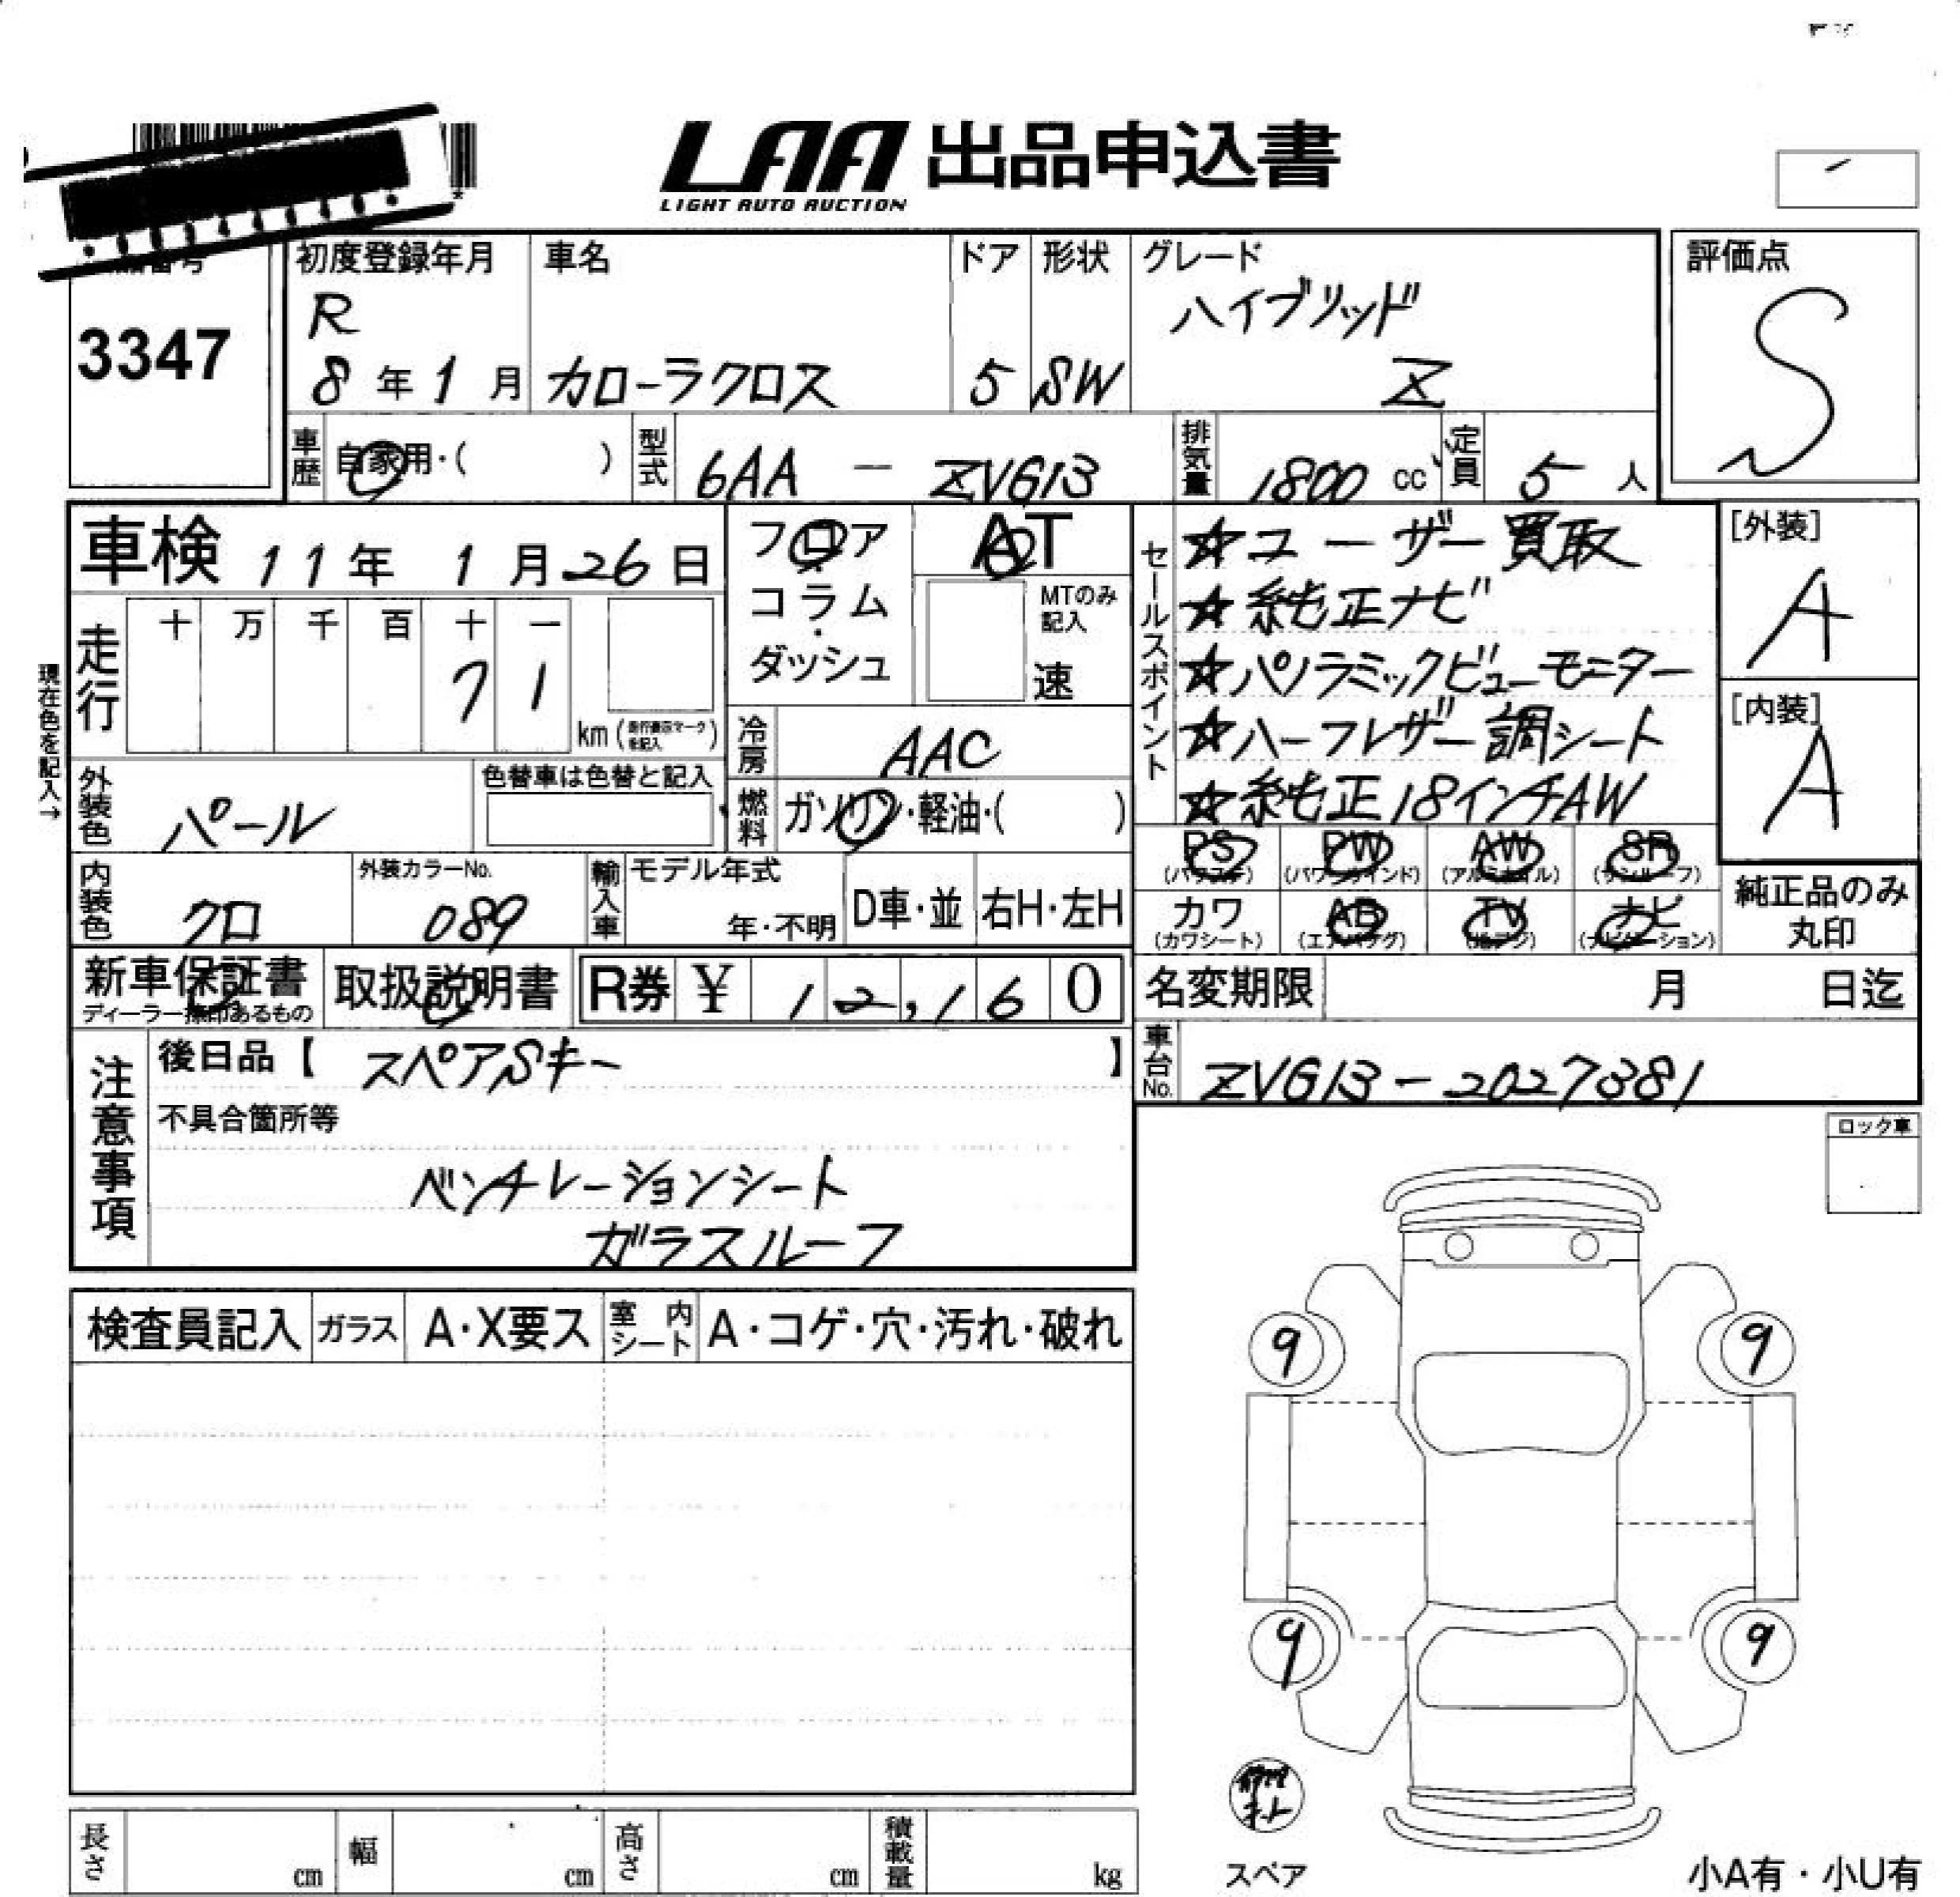 LAA 出品申込書
LIGHT AUTO AUCTION
3347
初度登録年月
R
8年1月
車名
カローラクロス
ドア
5
形状
SW
グレード
ハイブリッド
Z
評価点
S
車歴
自家用・( )
型式
6AA - ZVG13
排気量
1800 cc
定員
5人
車検 11年1月26日
フロア
コラム
・
ダッシュ
AT
MTのみ
記入
速
セールスポイント
☆ユーザー買取
☆純正ナビ
☆パノラミックビューモニター
☆ハーフレザー調シート
☆純正18インチAW
[外装]
A
[内装]
A
現在色を記入→
走行
十 万 千 百 十 一
7 1
km
冷房
AAC
外装色
パール
色替車は色替と記入
燃料
ガソリン・軽油・( )
PS
(パワステ)
PW
(パワーウインド)
AW
(アルミホイル)
SR
(サンルーフ)
カワ
(カワシート)
AB
(エアバッグ)
TV
ナビ
(ナビゲーション)
純正品のみ
丸印
内装色
クロ
外装カラーNo.
089
輸入車
モデル年式
年・不明
D車・並
右H・左H
新車保証書
ディーラー捺印あるもの
取扱説明書
R券 ¥ 12,160
名変期限 月 日迄
車台No.
ZVG13-2027381
注意事項
後日品【 スペアSキー 】
不具合箇所等
ベンチレーションシート
ガラスルーフ
ロック車
検査員記入
ガラス
A・X要ス
室内シート
A・コゲ・穴・汚れ・破れ
9 9
9 9
スペア
小A有・小U有
長さ cm
幅 cm
高さ cm
積載量 kg